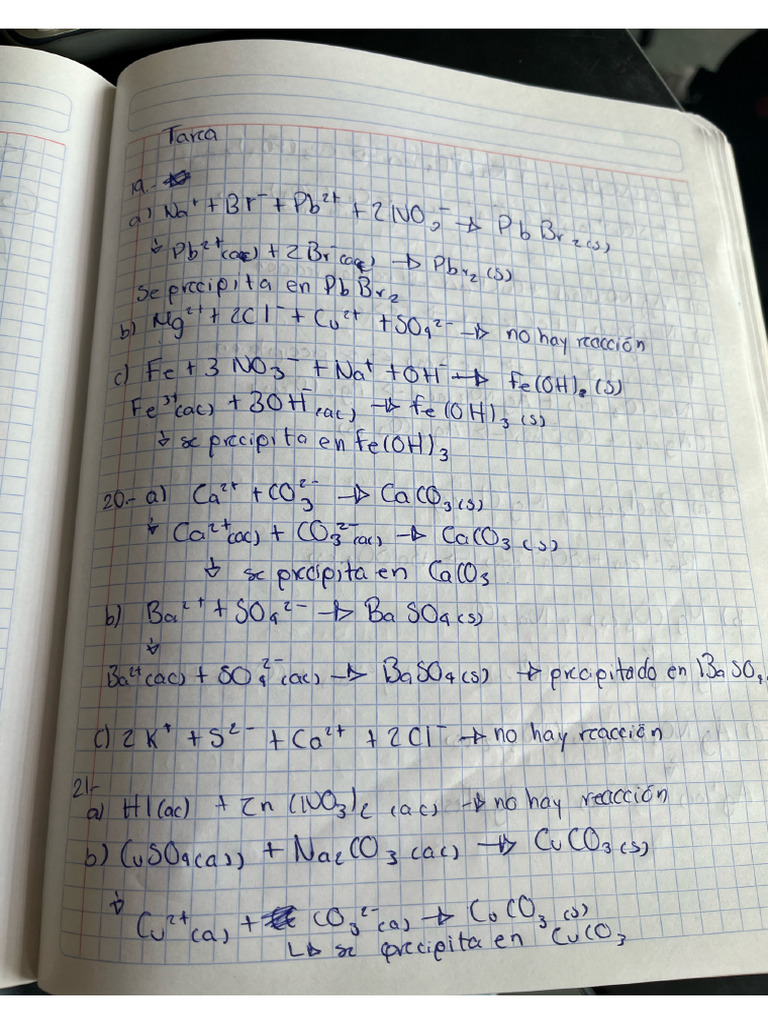 Tarea
19.-
a) Na⁺ + Br⁻ + Pb²⁺ + 2NO₃⁻ → PbBr₂(s)
↓ Pb²⁺(ac) + 2Br⁻(ac) → Pbr₂(s)
se precipita en PbBr₂
b) Mg²⁺ + 2Cl⁻ + Cu²⁺ + SO₄²⁻ → no hay reacción
c) Fe + 3 NO₃⁻ + Na⁺ + OH⁻ → Fe(OH)₂(s)
Fe³⁺(ac) + 3OH⁻(ac) → fe(OH)₃(s)
↓ se precipita en Fe(OH)₃
20.- a) Ca²⁺ + CO₃²⁻ → CaCO₃(s)
↓ Ca²⁺(ac) + CO₃²⁻(ac) → CaCO₃(s)
↓ se precipita en CaCO₃
b) Ba²⁺ + SO₄²⁻ → BaSO₄(s)
↓
Ba²⁺(ac) + SO₄²⁻(ac) → BaSO₄(s) → precipitado en BaSO₄
c) 2K⁺ + S²⁻ + Ca²⁺ + 2Cl⁻ → no hay reacción
21-
a) HI(ac) + Zn(NO₃)₂(ac) → no hay reacción
b) CuSO₄(ac) + Na₂CO₃(ac) → CuCO₃(s)
↓
Cu²⁺(a) + CO₃²⁻(a) → CuCO₃(s)
↳ se precipita en CuCO₃